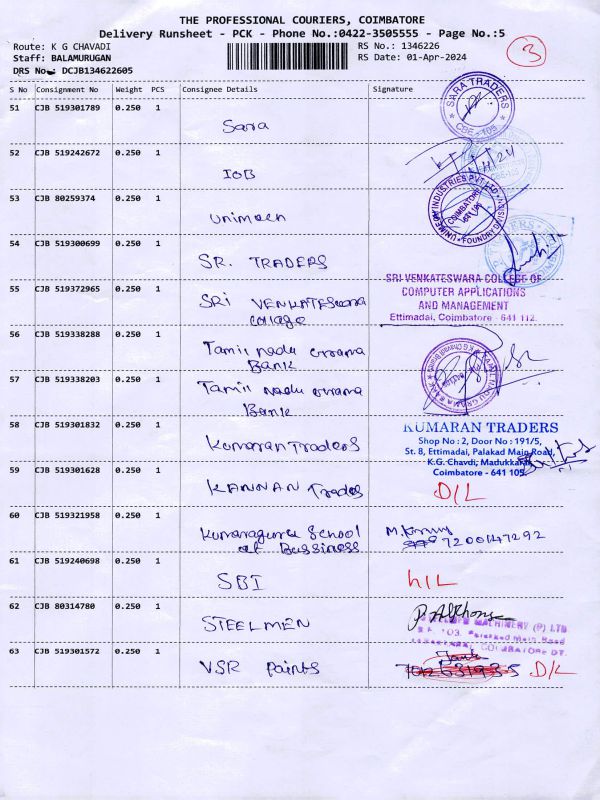 THE PROFESSIONAL COURIERS, COIMBATORE
Delivery Runsheet - PCK - Phone No.:0422-3505555 - Page No.:5
Route: K G CHAVADI
Staff: BALAMURUGAN
DRS No: DCJB134622605
RS No.: 1346226
RS Date: 01-Apr-2024
3
S No Consignment No Weight PCS Consignee Details Signature
51 CJB 519301789 0.250 1 Sara
SARA TRADERS
CBE - 105
52 CJB 519242672 0.250 1 IOB
53 CJB 80259374 0.250 1 Unimech
INDUSTRIES PVT LTD
COIMBATORE
FOUNDRY DIVISION
54 CJB 519300699 0.250 1 SR. TRADERS
55 CJB 519372965 0.250 1 SRI VENKATESwara
College
SRI VENKATESWARA COLLEGE OF
COMPUTER APPLICATIONS
AND MANAGEMENT
Ettimadai, Coimbatore - 641 112.
56 CJB 519338288 0.250 1 Tamil nadu grama
Bank
57 CJB 519338203 0.250 1 Tamil nadu grama
Bank
58 CJB 519301832 0.250 1 Kumaran Traders
KUMARAN TRADERS
Shop No : 2, Door No : 191/5,
St. 8, Ettimadai, Palakad Main Road,
K.G. Chavdi, Madukkarai,
Coimbatore - 641 105.
59 CJB 519301628 0.250 1 KANNAN Trades
D/L
60 CJB 519321958 0.250 1 Kumaraguru School
of Bussiness
7200147292
61 CJB 519240698 0.250 1 SBI
h/L
62 CJB 80314780 0.250 1 STEELMEN
MACHINERY (P) LTD
103, Palakad Main Road
COIMBATORE DT.
63 CJB 519301572 0.250 1 VSR Paints
D/L